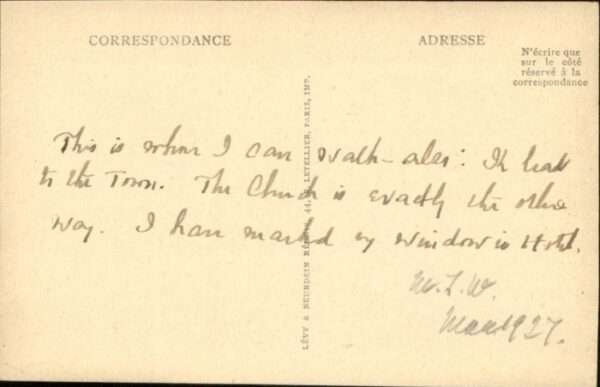 CORRESPONDANCE
ADRESSE
N'écrire que
sur le côté
réservé à la
correspondance
This is where I can walk - alas: It leads
to the Town. The Church is exactly the other
way. I have marked my window in Hotel.
M.L.W.
1927.
LÉVY & NEURDEIN RÉUNIS, 44, LETELLIER, PARIS, IMP.